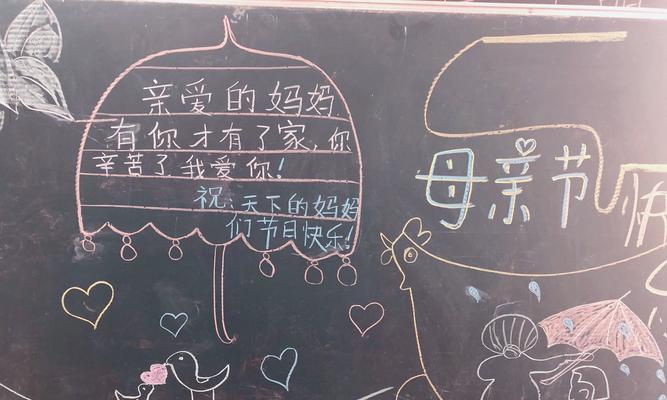 亲爱的妈妈
有你才有了家,你
辛苦了我爱你!
祝:天下的妈妈
们节日快乐!
母亲节快